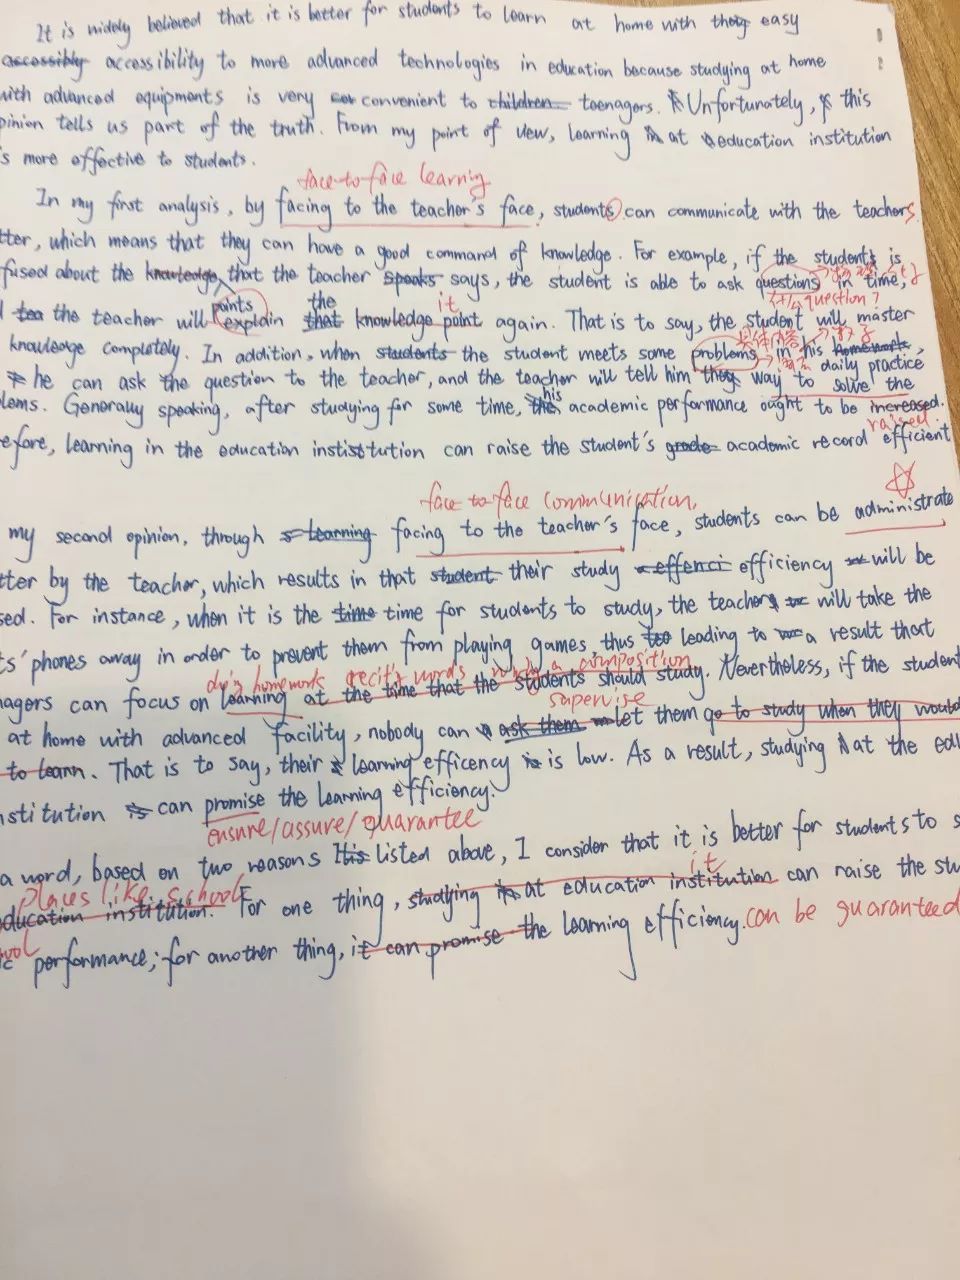 It is widely believed that it is better for students to learn at home with they easy
accessibly accessibility to more advanced technologies in education because studying at home
with advanced equipments is very convenient to children teenagers. Unfortunately, this
pinion tells us part of the truth. From my point of view, learning at education institution
s more effective to students.
face-to-face learning
In my first analysis, by facing to the teacher's face, students can communicate with the teachers
tter, which means that they can have a good command of knowledge. For example, if the students is
fused about the knowledge that the teacher speaks says, the student is able to ask questions in time,
points the it
question?
the teacher will explain that knowledge point again. That is to say, the student will master
具体内容
knowledge completely. In addition, when students the student meets some problems in his homework,
daily practice
he can ask the question to the teacher, and the teacher will tell him they way to solve the
lems. Generally speaking, after studying for some time, the his academic performance ought to be increased.
raised
efore, learning in the education instistitution can raise the student's grade academic record efficient
face-to-face communication
my second opinion, through learning facing to the teacher's face, students can be administrate
tter by the teacher, which results in that student their study effenci efficiency will be
sed. For instance, when it is the time time for students to study, the teacher will take the
ts' phones away in order to prevent them from playing games, thus leading to a result that
doing homework recite words write a composition
nagers can focus on learning at the time that the students should study. Nevertheless, if the student
supervise
at home with advanced facility, nobody can ask them let them go to study when they would
to learn. That is to say, their learning efficency is low. As a result, studying at the edu
nstitution can promise the learning efficiency.
ensure/assure/guarantee
a word, based on two reasons listed above, I consider that it is better for students to s
places like school it
ducation institution. For one thing, studying at education institution can raise the stu
ool
c performance; for another thing, it can promise the learning efficiency. can be guaranteed